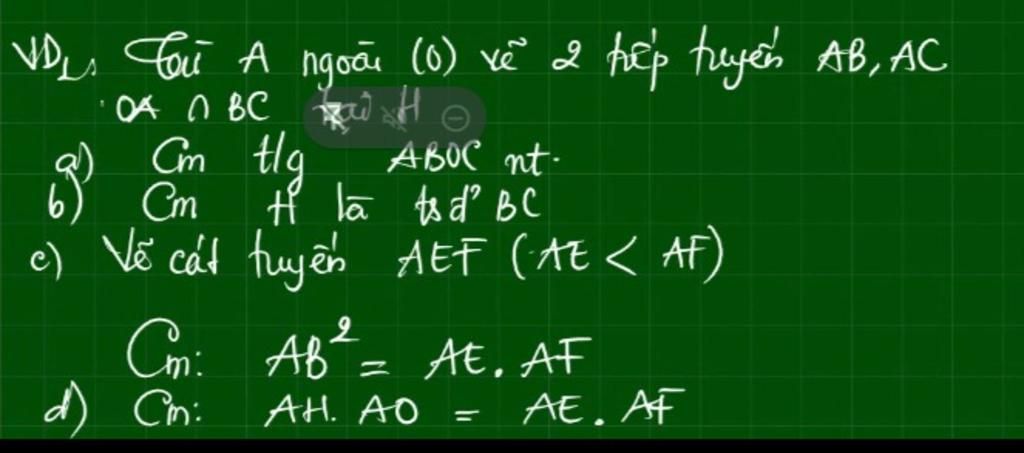 VD1, Từ A ngoài (O) vẽ 2 tiếp tuyến AB, AC
OA ∩ BC tại H
a) Cm t/g ABOC nt.
b) Cm H là tđ BC
c) Vẽ cát tuyến AEF (AE < AF)
Cm: AB² = AE. AF
d) Cm: AH. AO = AE. AF